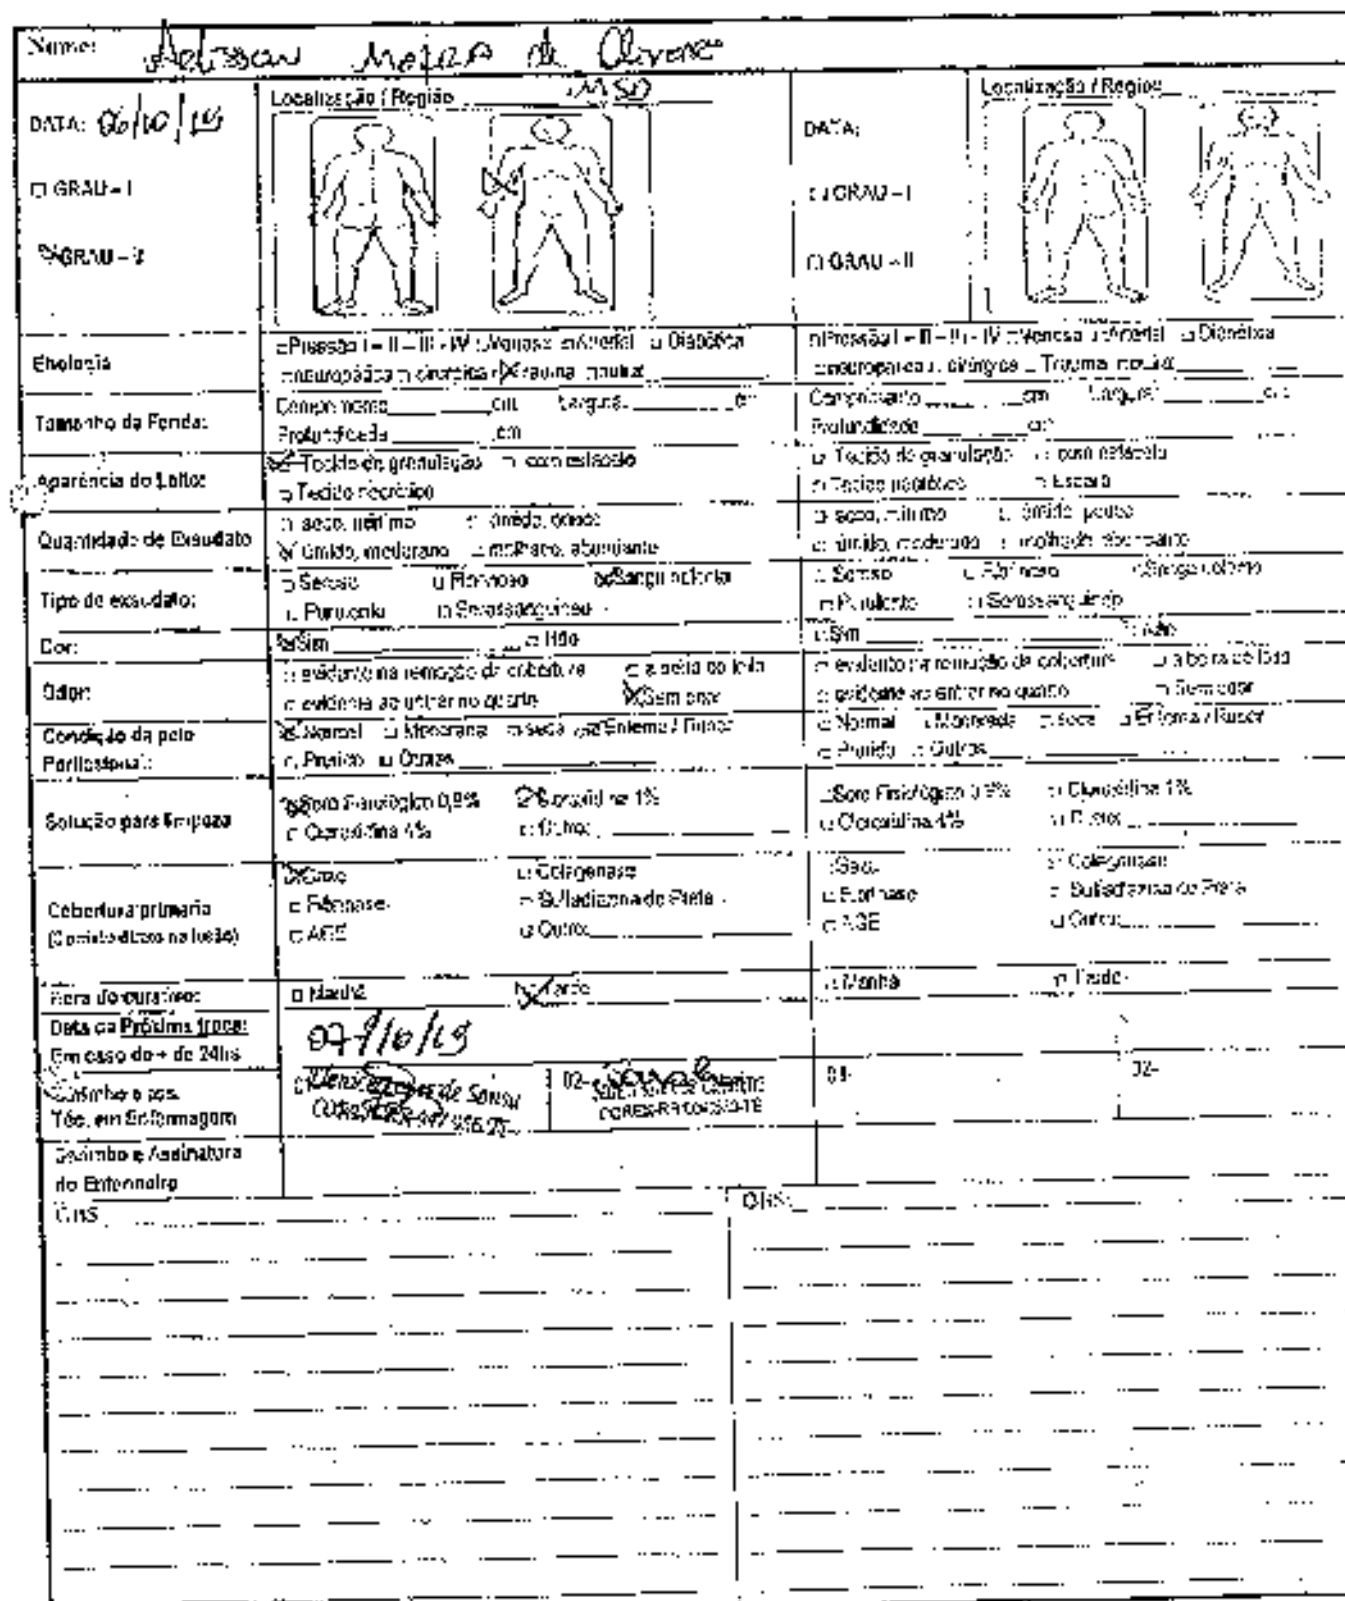 Nome: de
DATA: 06/10/19
Localização / Região MSD
□ GRAU - I
GRAU - II
DATA:
Localização / Região
□ GRAU - I
□ GRAU - II
Etiologia
□ Pressão I - II - III - IV □ Venosa □ Arterial □ Diabética
□ neuropática □ cirúrgica Trauma
□ Pressão I - II - III - IV □ Venosa □ Arterial □ Diabética
□ neuropática □ cirúrgica Trauma
Tamanho da Ferida:
Comprimento ______ cm Largura: ______ cm
Profundidade ______ cm
Comprimento ______ cm Largura: ______ cm
Profundidade ______ cm
Aparência do Leito:
Tecido de granulação □ com esfacelo
□ Tecido necrótico
□ Tecido de granulação □ com esfacelo
□ Tecido necrótico □ Escara
Quantidade de Exsudato
□ seco, mínimo □ úmido, pouco
úmido, moderado □ molhado, abundante
□ seco, mínimo □ úmido, pouco
□ úmido, moderado □ molhado, abundante
Tipo de exsudato:
□ Seroso □ Fibrinoso Sanguinolento
□ Purulento □ Serossanguíneo
□ Seroso □ Fibrinoso □ Sanguinolento
□ Purulento □ Serossanguíneo
Dor:
Sim ______ □ Não
□ Sim ______ □ Não
Odor:
□ evidente na remoção da cobertura □ a beira do leito
□ evidente ao entrar no quarto Sem odor
□ evidente na remoção da cobertura □ a beira do leito
□ evidente ao entrar no quarto □ Sem odor
Condição da pele
Perilesional:
Normal □ Macerada □ seca Eritema / Rubor
□ Prurido □ Outros ______
□ Normal □ Macerada □ seca □ Eritema / Rubor
□ Prurido □ Outros ______
Solução para limpeza
Soro Fisiológico 0,9% Clorexidina 1%
□ Clorexidina 4% □ Outro: ______
□ Soro Fisiológico 0,9% □ Clorexidina 1%
□ Clorexidina 4% □ Outro: ______
Cobertura primaria
(Contato direto na lesão)
Gaze □ Colagenase
□ Fibrinase □ Sulfadiazina de Prata
□ AGE □ Outro: ______
□ Gaze □ Colagenase
□ Fibrinase □ Sulfadiazina de Prata
□ AGE □ Outro: ______
Hora do curativo:
□ Manhã Tarde
□ Manhã □ Tarde
Data da Próxima troca:
Em caso de + de 24hs
07/10/19
Carimbo e ass.
Téc. em Enfermagem
de Sousa
02-
01-
02-
Carimbo e Assinatura
do Enfermeiro
OBS
OBS: